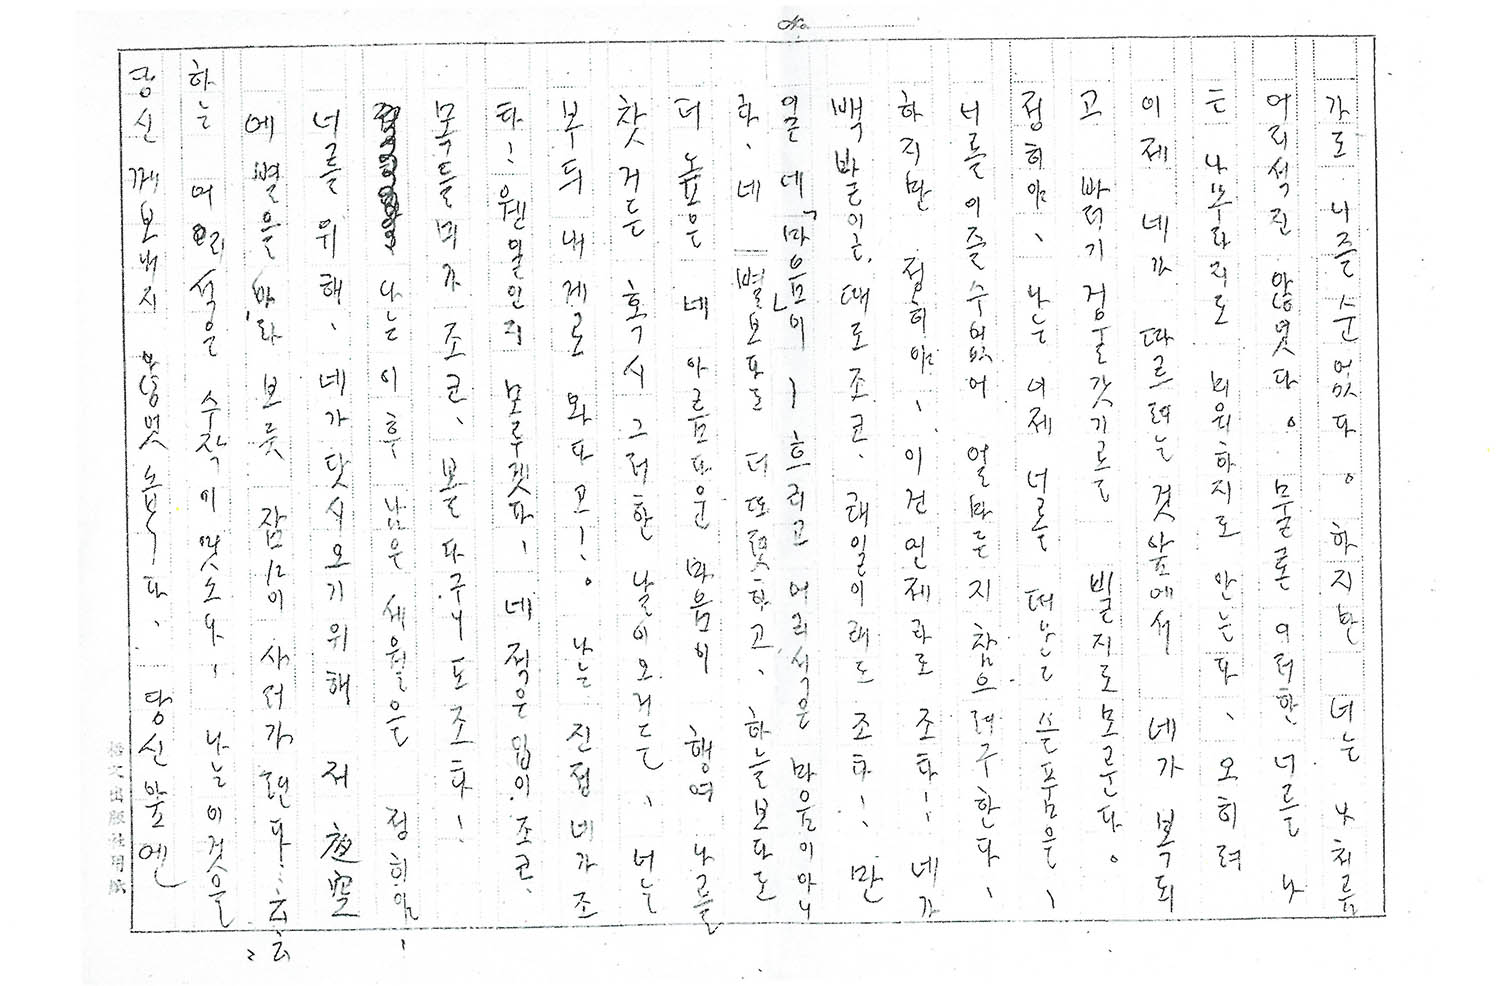 No.
가도 나즐 순 없다。 하지만 너는 나처름
어리석진 않엿다。 물론 이러한 너를 나
는 나무라지도 미워하지도 안는다、 오히려
이제 네가 따르려는 것 앞에서 네가 복되
고 빠르기 검불갓기를 빌지도 모른다。
정히야、 나는 이제 너를 떠난 슬픔을、
너를 이즐 수 없어 얼마든지 참으려구 한다、
하지만 정히야、 이건 언제라도 조타! 네가
백발이른 때도 조코、 래일이래도 조타! 만
일 네「마음」이 ― 흐리고 어리석은 마음이 아니
라、 네 별보다도 더 또렷하고、 하늘보다도
더 높은 네 아름다운 마음이 행여 나를
찻거든 혹시 그러한 날이 오거든、 너는
부듸 내게로 와다고―!。 나는 진정 네가 조
타! 웬일인지 모루겟다、 네 적은 입이 조코、
목들미가 조코、 볼다구니도 조타!
나는 이후 남은 세월을 정히야、
너를 위해、 네가 닷시 오기 위해 저 夜空
에 별을 바라보듯 잠잠이 사러가련다…云云
하는 어리석은 수작이 엿소나、 나는 이것을
당신께 보내지 않엿습니다、 당신 앞엔
出版社用紙